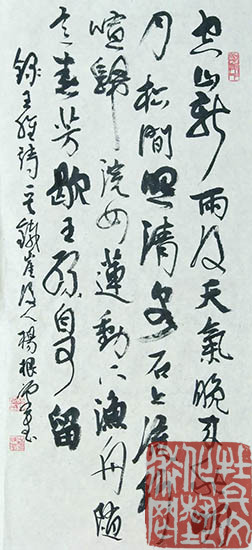 空山新雨後天氣晚來秋明
月松間照清泉石上流竹
喧歸浣女蓮動下漁舟隨
意春芳歇王孫自可留
錄王維詩一首鐵崖後人楊根書